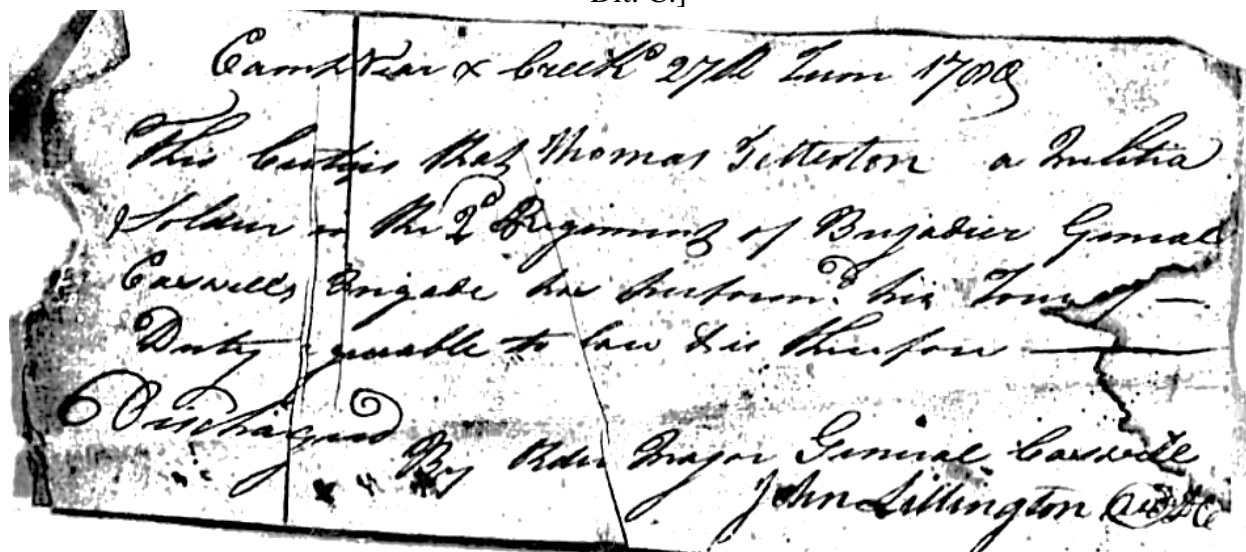 Dia. C.]
Camp Near & Creek 27th Jun 1780
This Certifis that Thomas Titterton a Militia
Soldier in the 2d Regiment of Brijadier General
Caswells Brigade has
Duty to law & is therfore
Discharged
By Order Major General Caswell
John Lillington